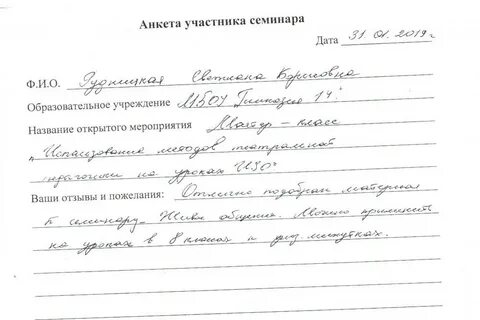 Анкета участника семинара
Дата 31.01.2019г.
Ф.И.О. Рудницкая Светлана Борисовна
Образовательное учреждение "Гимназия 14"
Название открытого мероприятия Мастер-класс
"Использование методов театральной
педагогики на уроках ИЗО"
Ваши отзывы и пожелания: Отлично подобран материал
к семинару. Живое общение. Можно применить
на уроках в 8 классах и физ. минутках.